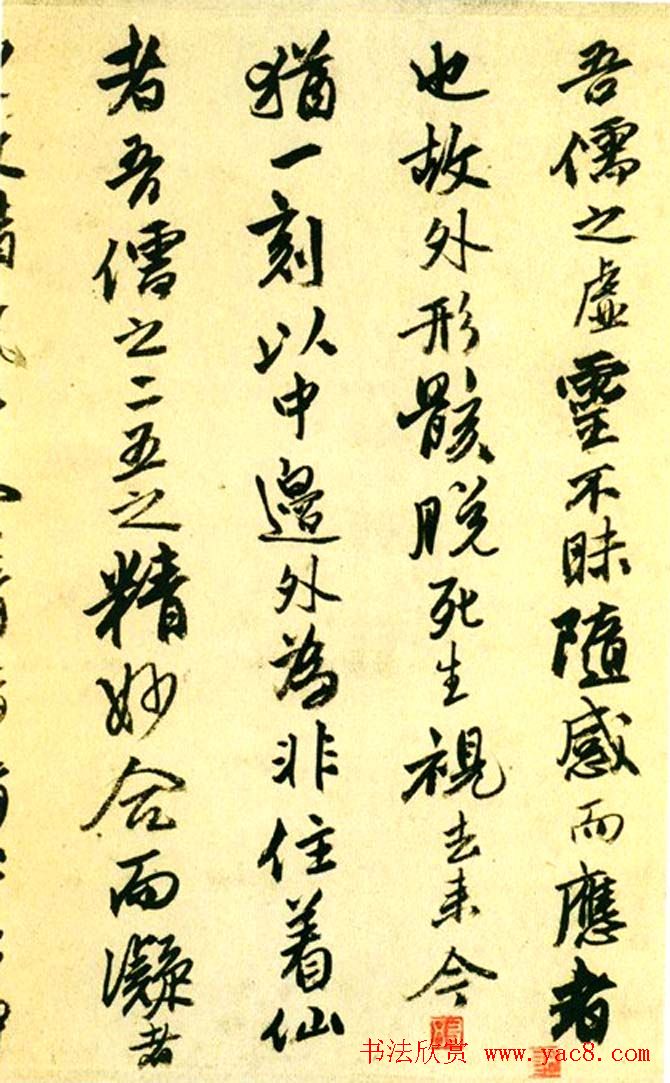 吾儒之虛靈不昧隨感而應者
也故外形骸脱死生視去来今
猶一刻以中邊外為非住着仙
者吾儒之二五之精妙合而凝者
书法欣赏 www.yac8.com